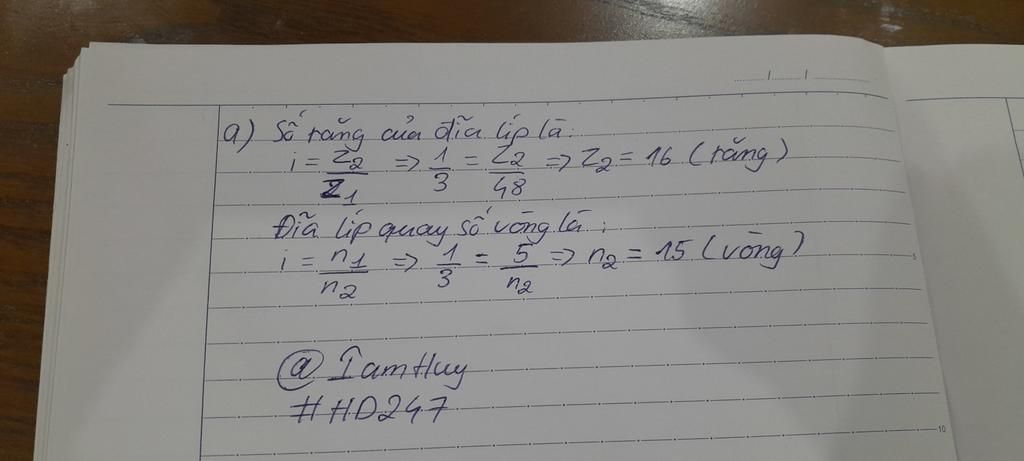 a) Số răng của đĩa líp là:
i = Z2/Z1 => 1/3 = Z2/48 => Z2 = 16 (răng)
Đĩa líp quay số vòng là:
i = n1/n2 => 1/3 = 5/n2 => n2 = 15 (vòng)
@IamHuy
#HD247
5
10